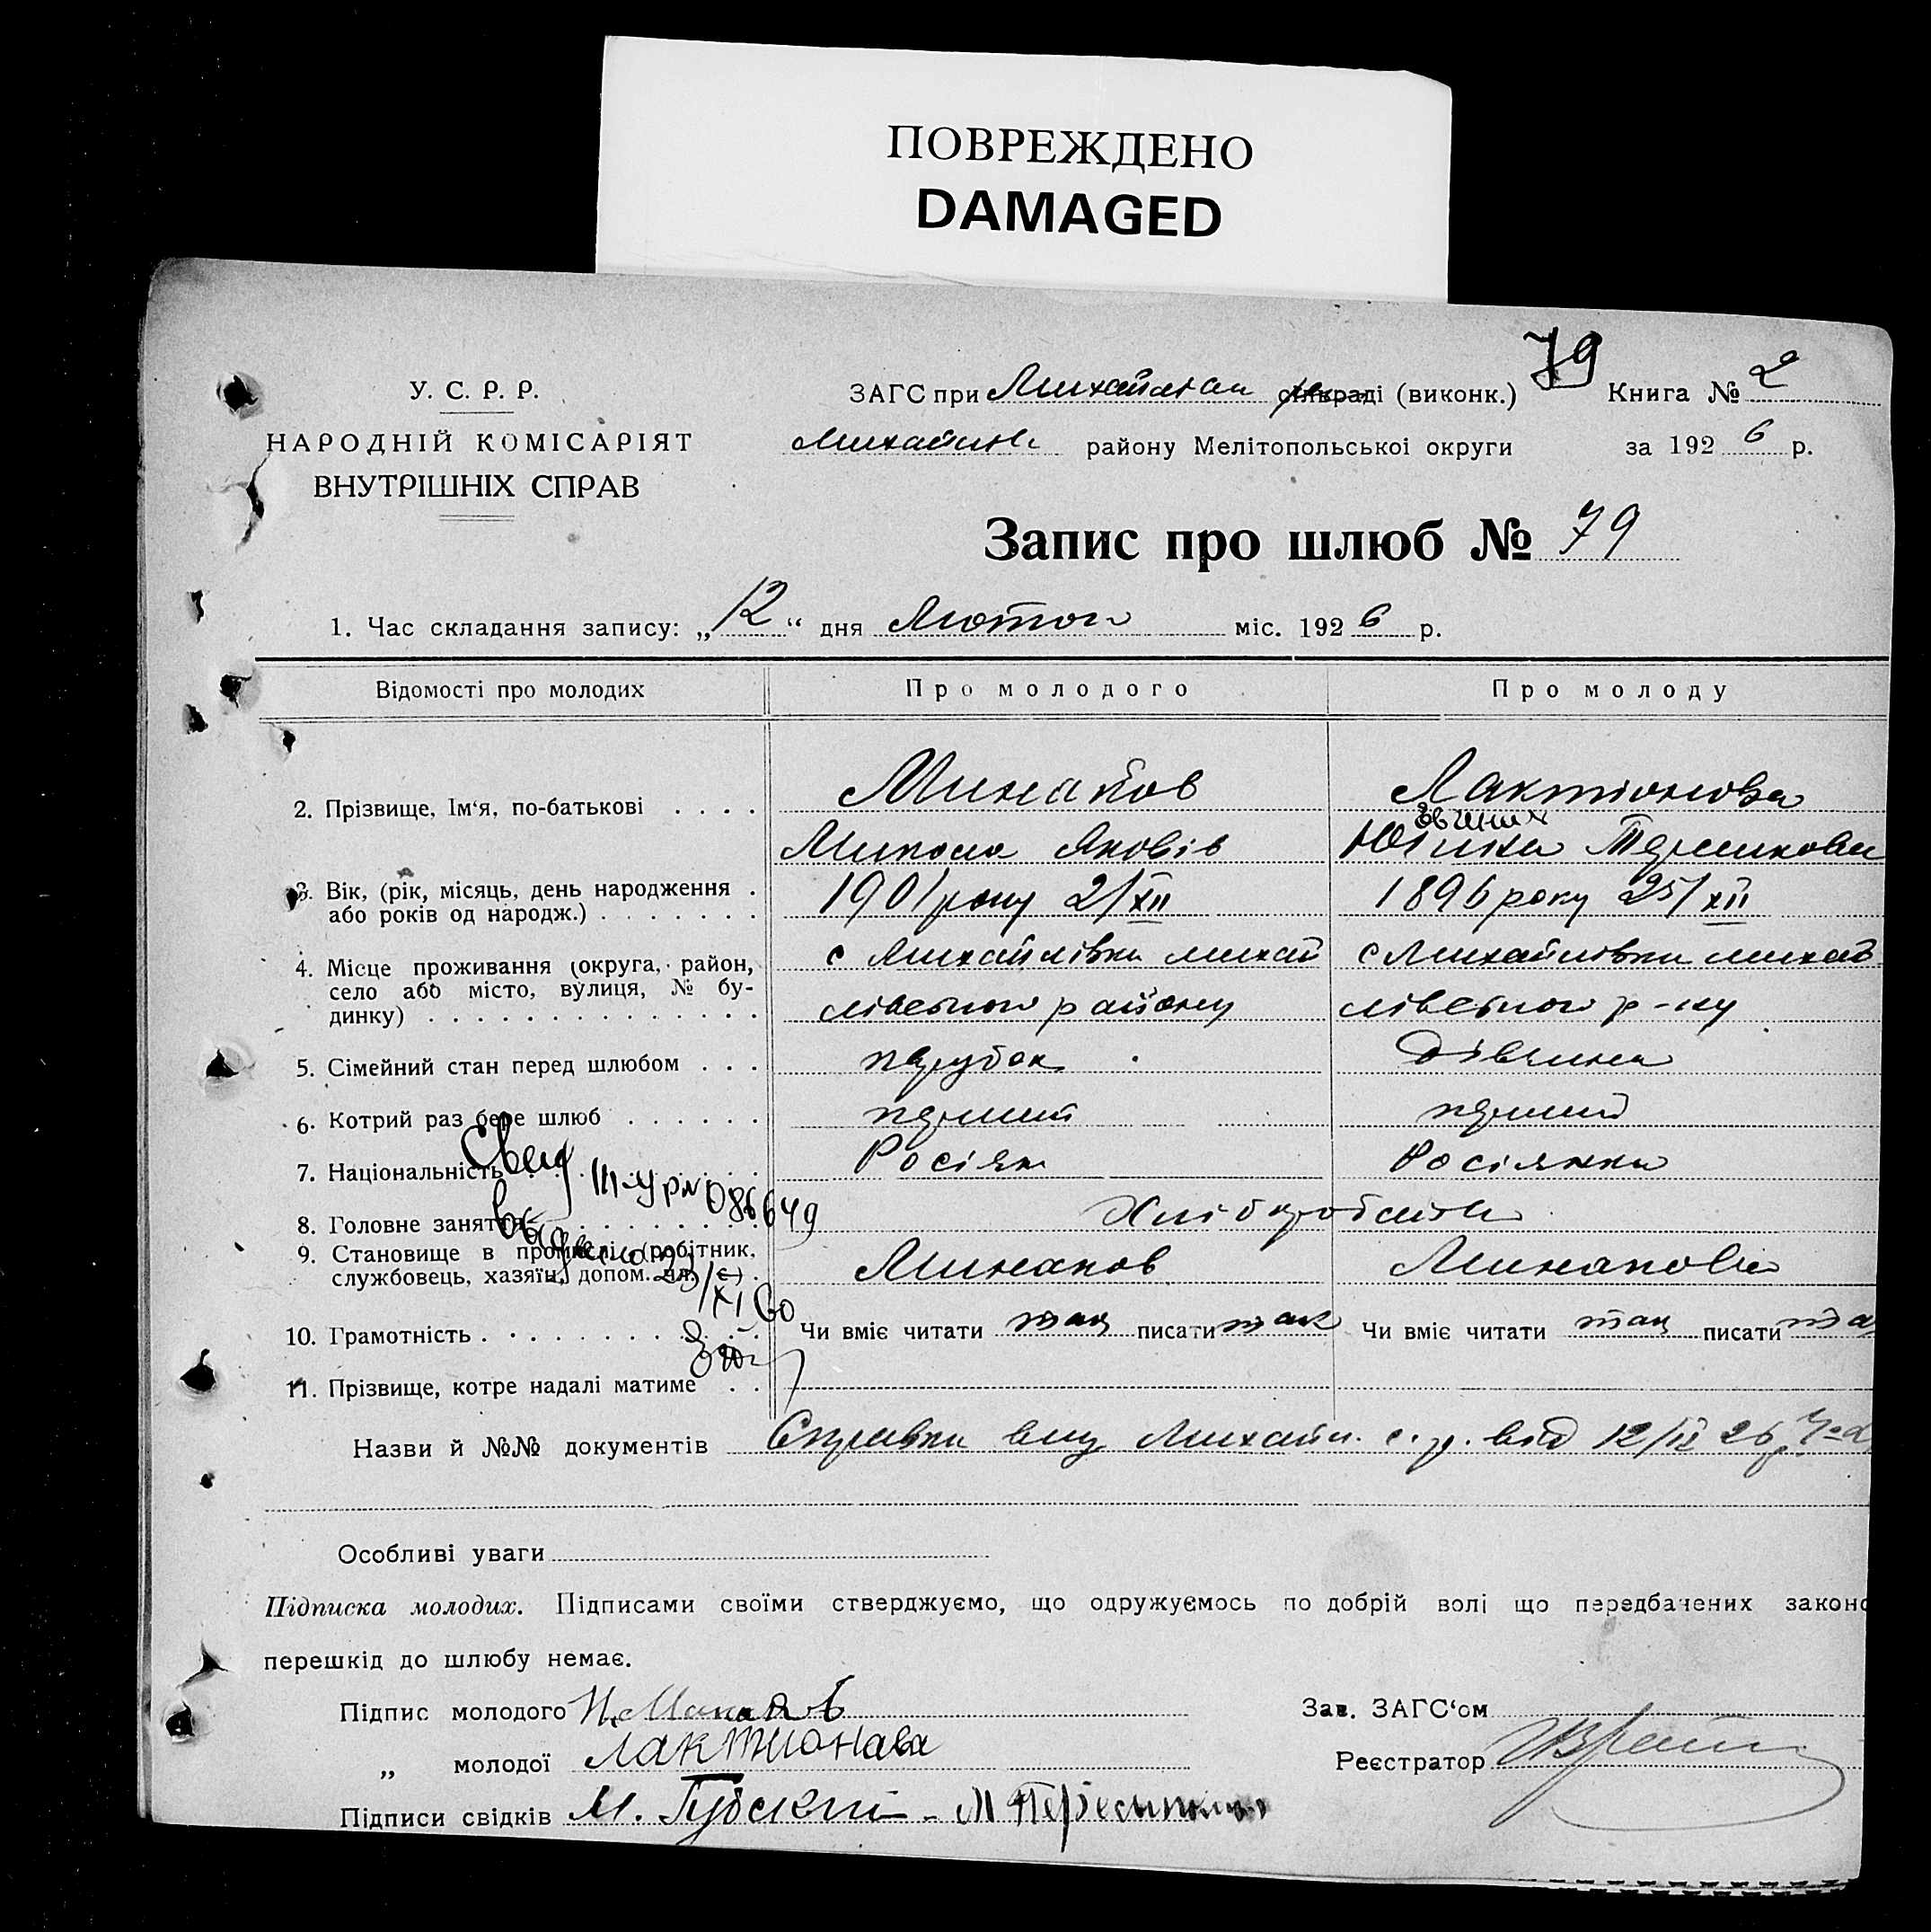 ПОВРЕЖДЕНО
DAMAGED
79
У. С. Р. Р.
НАРОДНІЙ КОМІСАРІЯТ
ВНУТРІШНІХ СПРАВ
ЗАГС при сількраді (виконк.) Книга № 2
району Мелітопольської округи за 1926 р.
Запис про шлюб № 79
1. Час складання запису: „12“ дня Лютого міс. 1926 р.
Відомості про молодих Про молодого Про молоду
2. Прізвище, Ім‘я, по-батькові . . . . Минаков Лактіонова
Микола Яковів
3. Вік, (рік, місяць, день народження .
або років од народж.) . . . . . . . 1901 року 2/XII 1896 року 25/XII
4. Місце проживання (округа, район,
село або місто, вулиця, № бу-
динку) . . . . . . . . . . . . . .
с Михайлівки михай с Михайлівки михай
лівського району лівського р-ну
5. Сімейний стан перед шлюбом . . . парубок дівчина
6. Котрий раз бере шлюб . . . . . . перший перший
7. Національність . . . . . . . . . Росіян Росіянка
8. Головне заняття . . . . . . . . . Хлібороби
9. Становище в промислі (робітник,
службовець, хазяїн, допом. чл.) . Минаков Минакова
Свид III-УР № 086649
23/XI 60
10. Грамотність . . . . . . . . . . . Чи вміє читати так писати так Чи вміє читати так писати та
11. Прізвище, котре надалі матиме . .
Назви й №№ документів Справки Михайл. с.р. від 12/II 26
Особливі уваги
Підписка молодих. Підписами своїми стверджуємо, що одружуємось по добрій волі що передбачених законо
перешкід до шлюбу немає.
Підпис молодого Н. Минаков Зав. ЗАГС‘ом
„ молодої Лактионава Реєстратор
Підписи свідків М. Губский - М